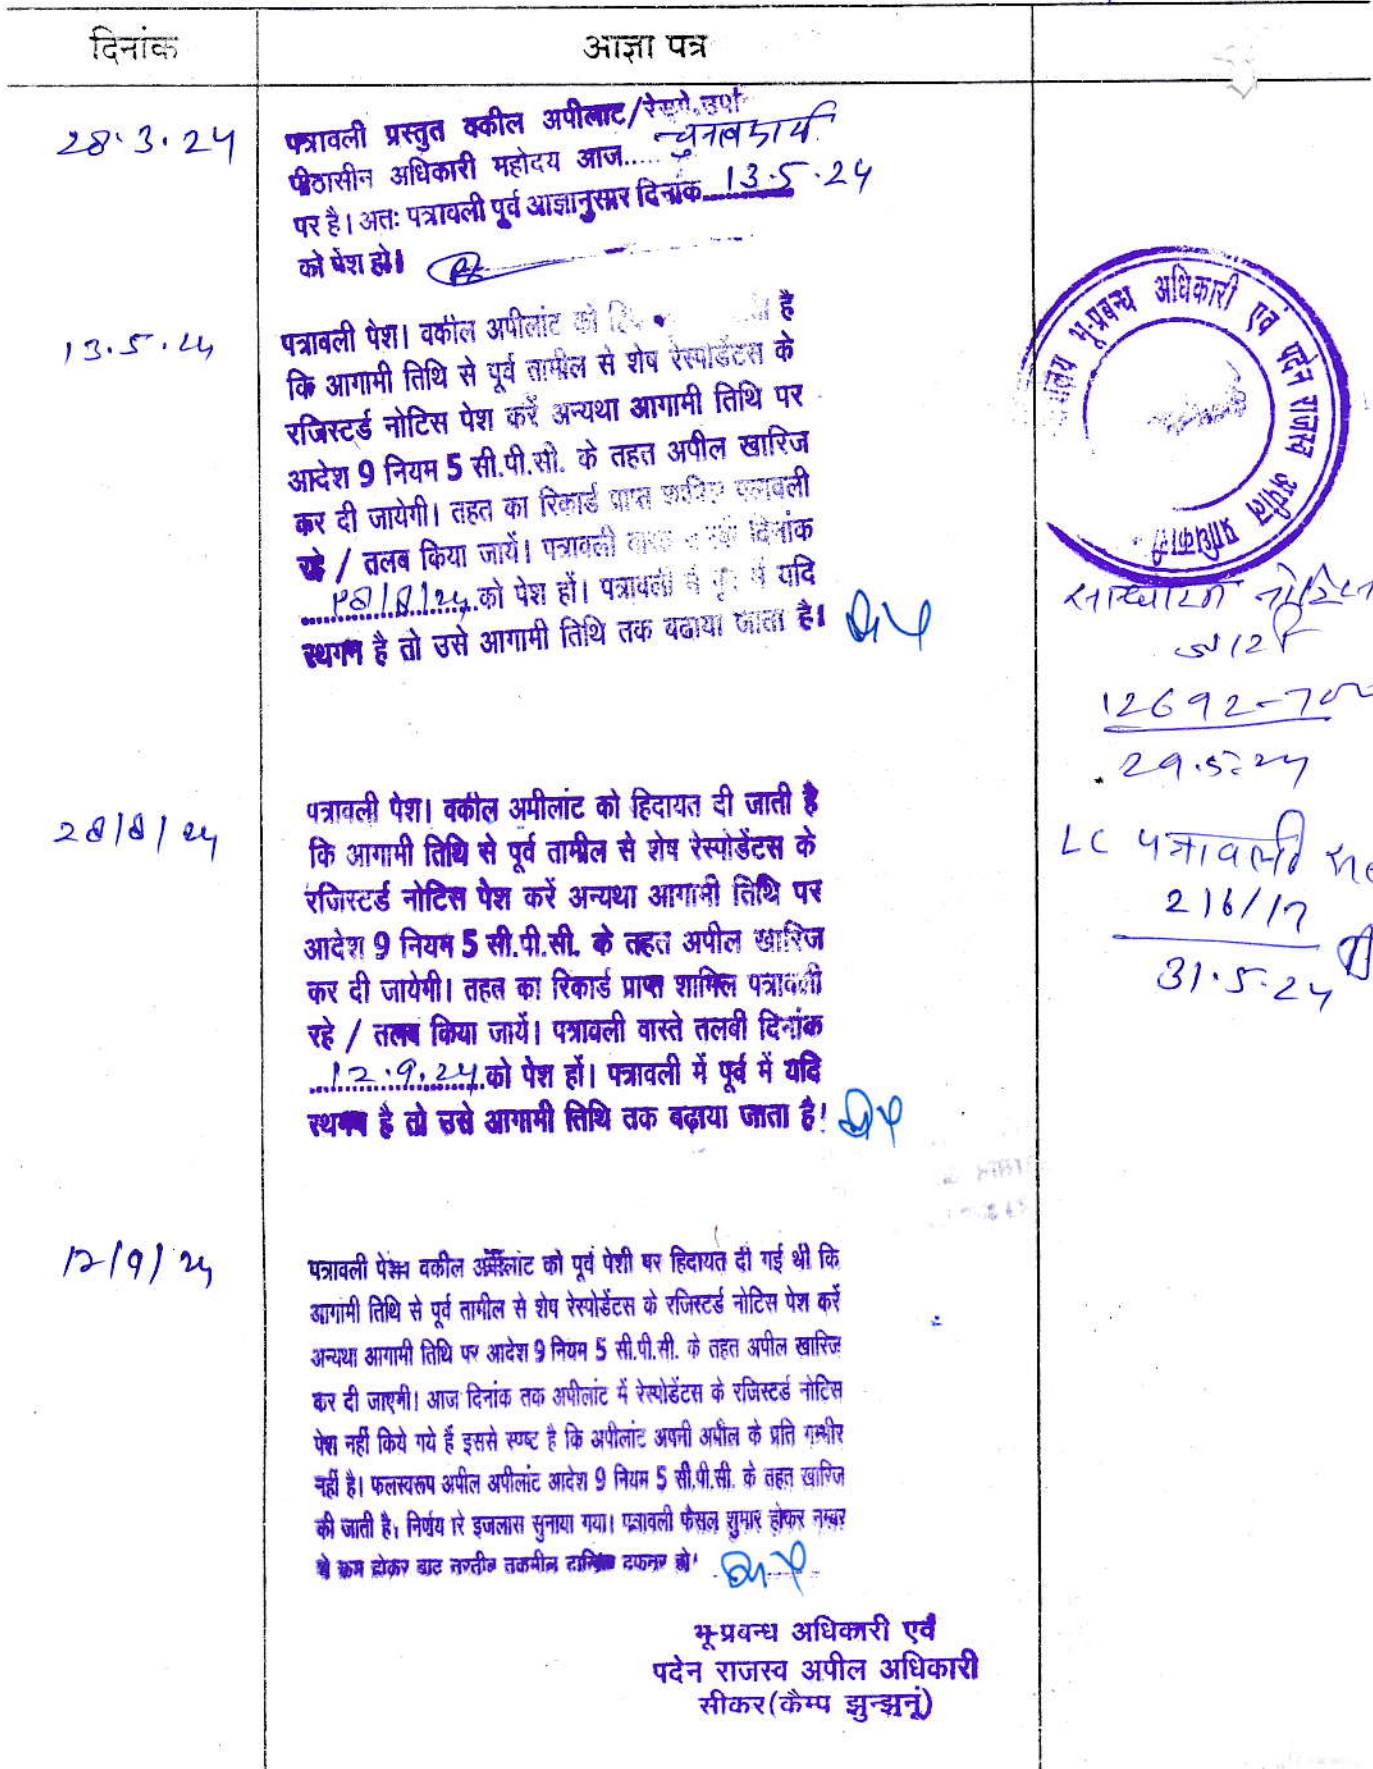 दिनांक
आज्ञा पत्र
28.3.24
पत्रावली प्रस्तुत वकील अपीलाट/रेस्पो.उप०
पीठासीन अधिकारी महोदय आज..... चुनाव कार्य
पर है। अतः पत्रावली पूर्व आज्ञानुसार दिनांक 13.5.24
को पेश हो।
13.5.24
पत्रावली पेश। वकील अपीलांट को है
कि आगामी तिथि से पूर्व तामील से शेष रेस्पोडेंटस के
रजिस्टर्ड नोटिस पेश करें अन्यथा आगामी तिथि पर
आदेश 9 नियम 5 सी.पी.सी. के तहत अपील खारिज
कर दी जायेगी। तहत का रिकार्ड प्राप्त पत्रावली
रहे / तलब किया जायें। पत्रावली दिनांक
28/8/24 को पेश हों। पत्रावली में यदि
स्थगन है तो उसे आगामी तिथि तक बढाया जाता है।
28/8/24
पत्रावली पेश। वकील अपीलांट को हिदायत दी जाती है
कि आगामी तिथि से पूर्व तामील से शेष रेस्पोडेंटस के
रजिस्टर्ड नोटिस पेश करें अन्यथा आगामी तिथि पर
आदेश 9 नियम 5 सी.पी.सी. के तहत अपील खारिज
कर दी जायेगी। तहत का रिकार्ड प्राप्त शामिल पत्रावली
रहे / तलब किया जायें। पत्रावली वास्ते तलबी दिनांक
12.9.24 को पेश हों। पत्रावली में पूर्व में यदि
स्थगन है तो उसे आगामी तिथि तक बढ़ाया जाता है!
12/9/24
पत्रावली पेश। वकील अपीलांट को पूर्व पेशी पर हिदायत दी गई थी कि
आगामी तिथि से पूर्व तामील से शेष रेस्पोडेंटस के रजिस्टर्ड नोटिस पेश करें
अन्यथा आगामी तिथि पर आदेश 9 नियम 5 सी.पी.सी. के तहत अपील खारिज
कर दी जाएगी। आज दिनांक तक अपीलांट में रेस्पोडेंटस के रजिस्टर्ड नोटिस
पेश नहीं किये गये हैं इससे स्पष्ट है कि अपीलांट अपनी अपील के प्रति गम्भीर
नहीं है। फलस्वरूप अपील अपीलांट आदेश 9 नियम 5 सी.पी.सी. के तहत खारिज
की जाती है। निर्णय रे इजलास सुनाया गया। पत्रावली फैसल शुमार होकर नम्बर
से कम होकर बाद तरतीब तकमील दाखिल दफ्तर हो।
भू-प्रबन्ध अधिकारी एवं
पदेन राजस्व अपील अधिकारी
सीकर(कैम्प झुन्झुनूं)
भू-प्रबन्ध अधिकारी एवं पदेन राजस्व अपील प्राधिकारी
साधारण नोटिस
जारी
12692-700
29.5.24
LC पत्रावली
216/17
31.5.24